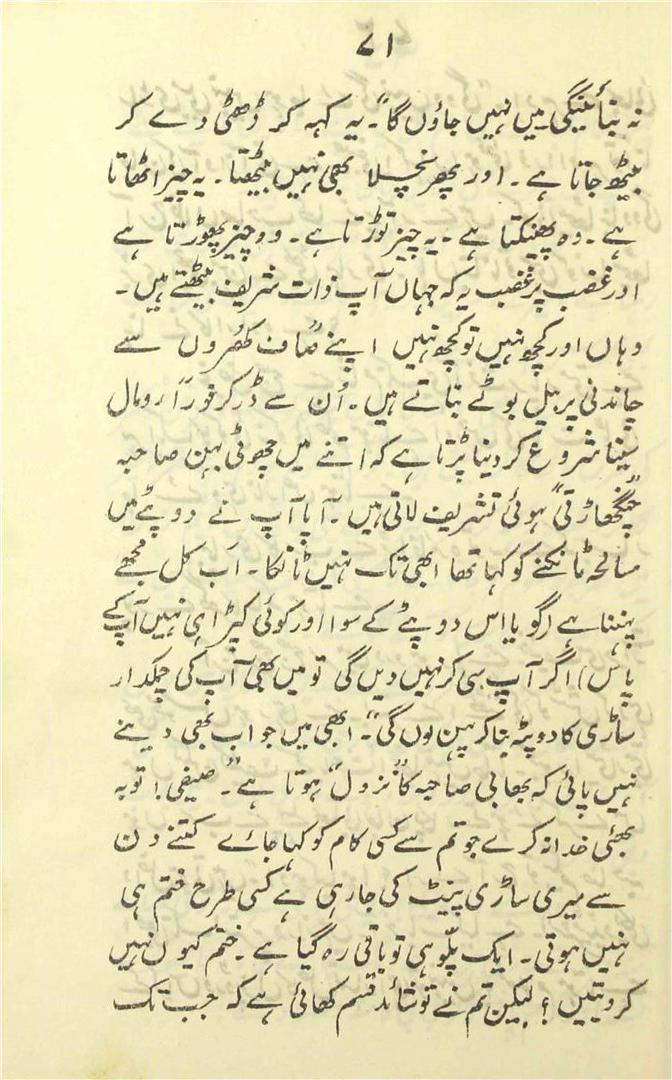 ۷۱
نہ بنائینگی میں نہیں جاؤں گا"۔ یہ کہہ کر ڈھئی دے کر
بیٹھ جاتا ہے۔ اور پھر نچلا بھی نہیں بیٹھتا۔ یہ چیز اٹھاتا
ہے۔ وہ پھینکتا ہے۔ یہ چیز توڑتا ہے۔ وہ چیز پھوڑتا ہے
اور غضب پر غضب یہ کہ جہاں آپ ذات شریف بیٹھتے ہیں۔
وہاں اور کچھ نہیں تو کچھ نہیں اپنے "صاف کھروں سے
چاندنی پر بیل بوٹے بناتے ہیں۔ اُن سے ڈر کر فوراً رومال
سینا شروع کر دینا پڑتا ہے کہ اتنے میں چھوٹی بہن صاحبہ
"چنگھاڑتی" ہوئی تشریف لاتی ہیں۔ آپا آپ نے دوپٹے میں
مسالحہ ٹانکنے کو کہا تھا ابھی تک نہیں ٹانکا۔ اب کل مجھے
پہننا ہے (گویا اس دوپٹے کے سوا اور کوئی کپڑا ہی نہیں آپ کے
پاس) اگر آپ سی کر نہیں دیں گی تو میں بھی آپ کی چمکدار
ساڑی کا دوپٹہ بنا کر پہن لوں گی"۔ ابھی میں جواب بھی دینے
نہیں پائی کہ بھابی صاحبہ کا "نزول" ہوتا ہے"۔ صیفی! توبہ
بھئی خدا نہ کرے جو تم سے کسی کام کو کہا جائے کتنے دن
سے میری ساڑی پینٹ کی جا رہی ہے کسی طرح ختم ہی
نہیں ہوتی۔ ایک پلّو ہی تو باقی رہ گیا ہے۔ ختم کیوں نہیں
کر دیتیں؟ لیکن تم نے تو شائد قسم کھائی ہے کہ جب تک